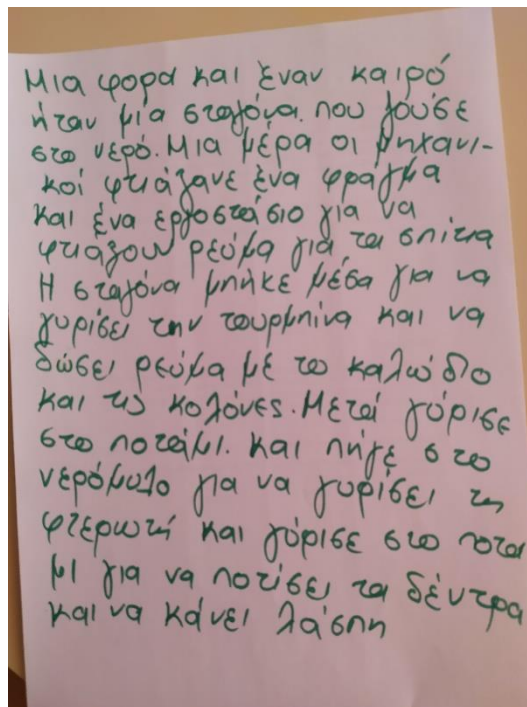 Μια φορα και έναν καιρό
ήταν μια σταγόνα που ζούσε
στο νερό. Μια μέρα οι μηχανι-
κοί φτιάξανε ένα φραγμα
και ένα εργοστάσιο για να
φτιάξουν ρεύμα για τα σπίτια
Η σταγόνα μπήκε μέσα για να
γυρίσει την τουρμπίνα και να
δώσει ρεύμα με το καλώδιο
και τις κολόνες. Μετά γύρισε
στο ποτάμι. Και πήγε στο
νερόμυλο για να γυρίσει τη
φτερωτή και γύρισε στο ποτα
μι για να ποτίσει τα δέντρα
και να κάνει λάσπη